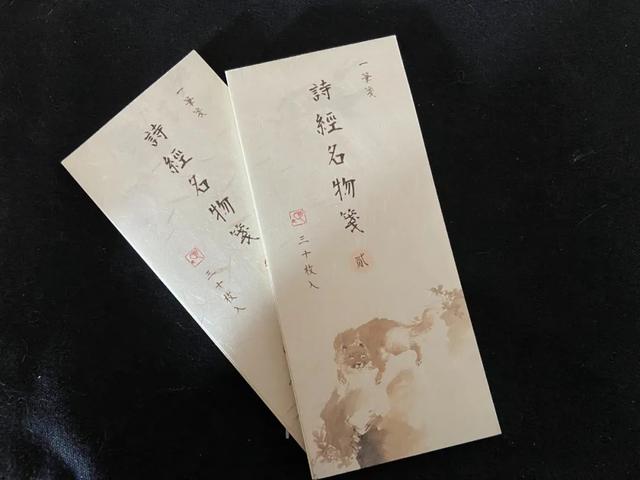 一筆箋
詩經名物箋
三十枚入
一筆箋
詩經名物箋
貳
三十枚入